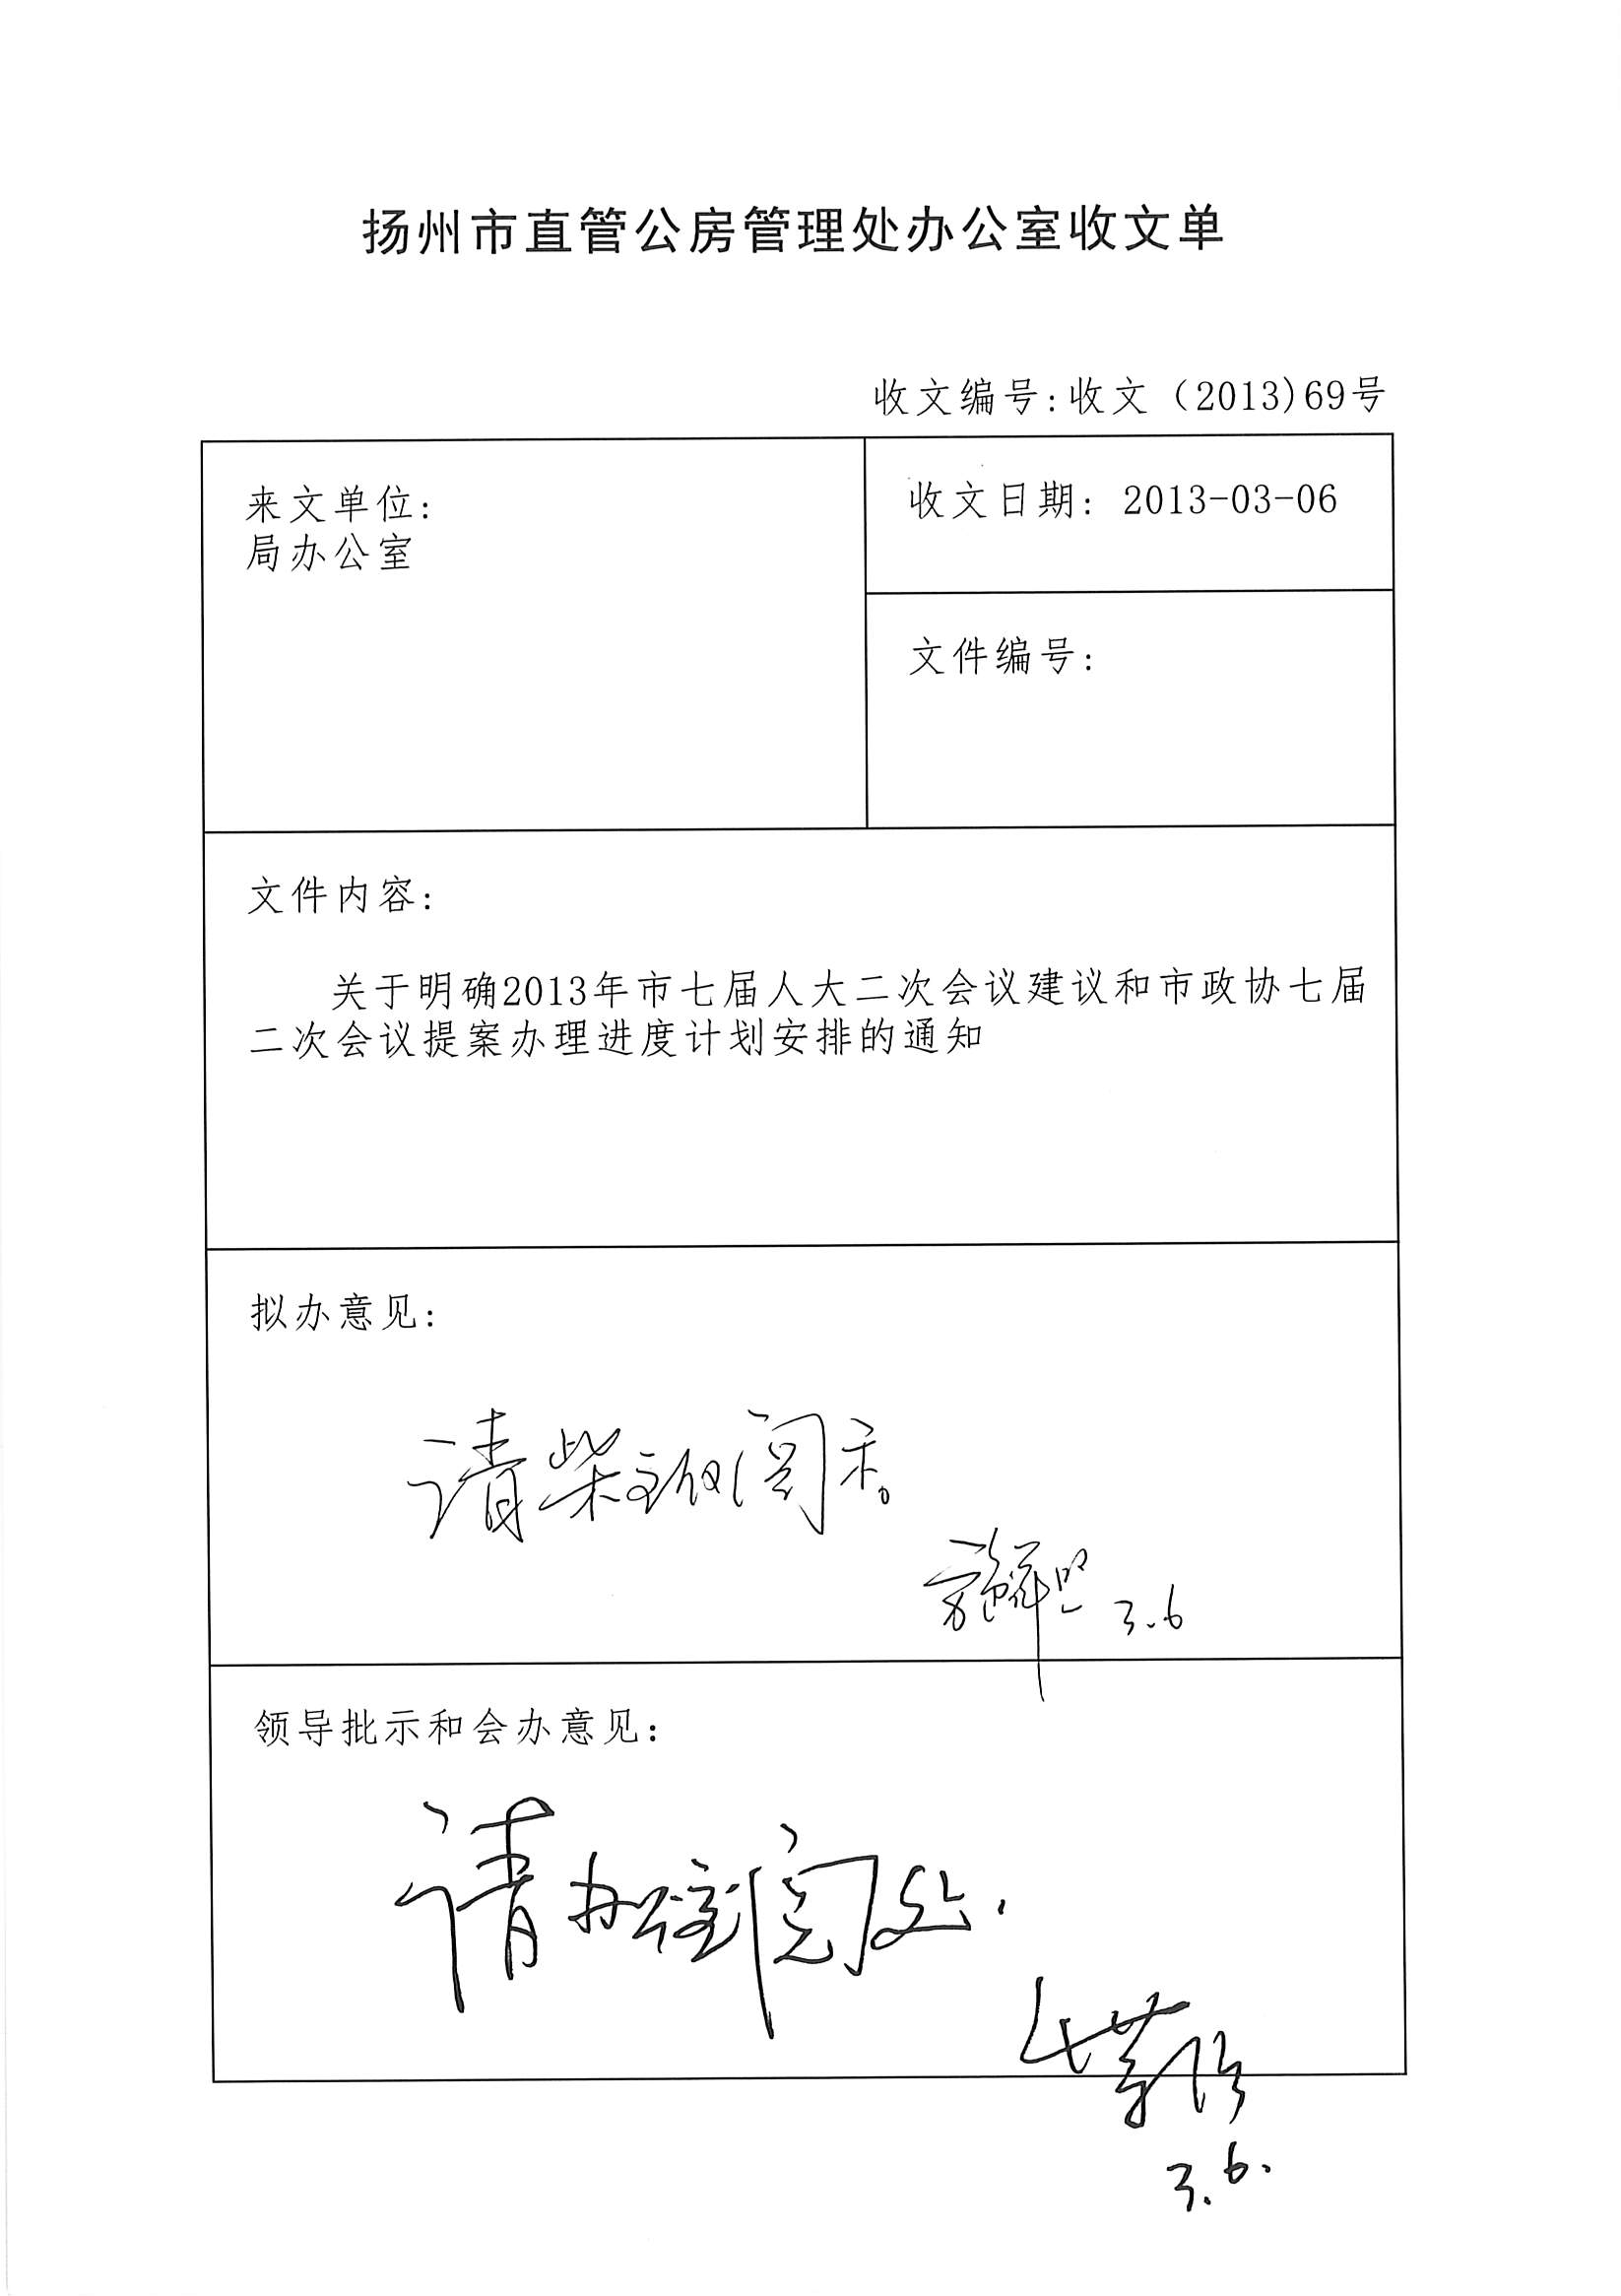 扬州市直管公房管理处办公室收文单
收文编号:收文（2013)69号
来文单位:
局办公室
收文日期: 2013-03-06
文件编号:
文件内容:
关于明确2013年市七届人大二次会议建议和市政协七届
二次会议提案办理进度计划安排的通知
拟办意见:
请柴主任阅示。
3.6
领导批示和会办意见:
请办公室阅处.
3.6.